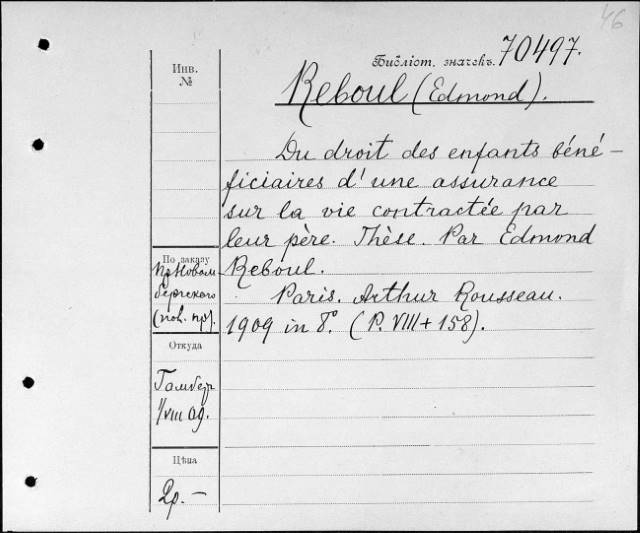 46
Библіот. значекъ. 70497.
Инв.
№
Reboul (Edmond).
Du droit des enfants béné-
ficiaires d'une assurance
sur la vie contractée par
leur père. Thèse. Par Edmond
Reboul.
Paris. Arthur Rousseau.
1909 in 8°. (P. VIII + 158).
По заказу
(пол. пр).
Откуда
1/VIII 09.
Цѣна
2р. —